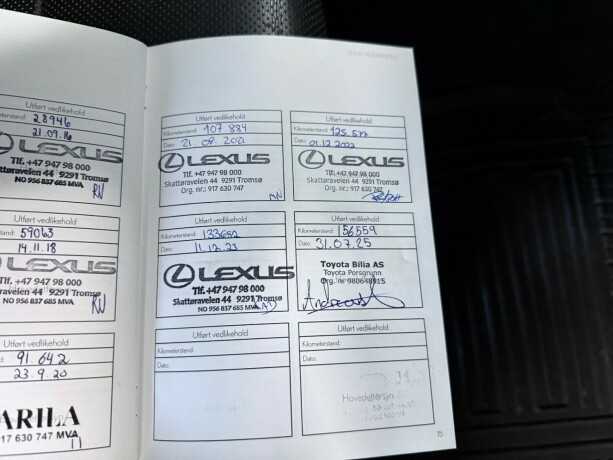 Utført vedlikehold
28946
21.09.16
LEXUS
Tlf. +47 947 98 000
Skattøraveien 44 9291 Tromsø
NO 956 837 685 MVA
RW
Utført vedlikehold
59063
14.11.18
LEXUS
Tlf. +47 947 98 000
Skattøraveien 44 9291 Tromsø
NO 956 837 685 MVA
RW
Utført vedlikehold
91.642
23.9.20
ARILA
917 630 747 MVA
Utført vedlikehold
Kilometerstand: 107 884
Dato: 21.08.2021
LEXUS
Tlf. +47 947 98 000
Skattøraveien 44 9291 Tromsø
Org. nr.: 917 630 747
Utført vedlikehold
Kilometerstand:
Dato: 01.12.2022
LEXUS
Tlf. +47 947 98 000
Skattøraveien 44 9291 Tromsø
Org. nr.: 917 630 747
Utført vedlikehold
Kilometerstand:
Dato: 11.12.23
LEXUS
Tlf. +47 947 98 000
Skattøraveien 44 9291 Tromsø
NO 956 837 685 MVA
Utført vedlikehold
Kilometerstand: 156559
Dato: 31.07.25
Toyota Bilia AS
Toyota Porsgrunn
Org nr 980648915
Utført vedlikehold
Kilometerstand:
Dato:
Utført vedlikehold
Kilometerstand:
Dato:
Hovedettersyn
15